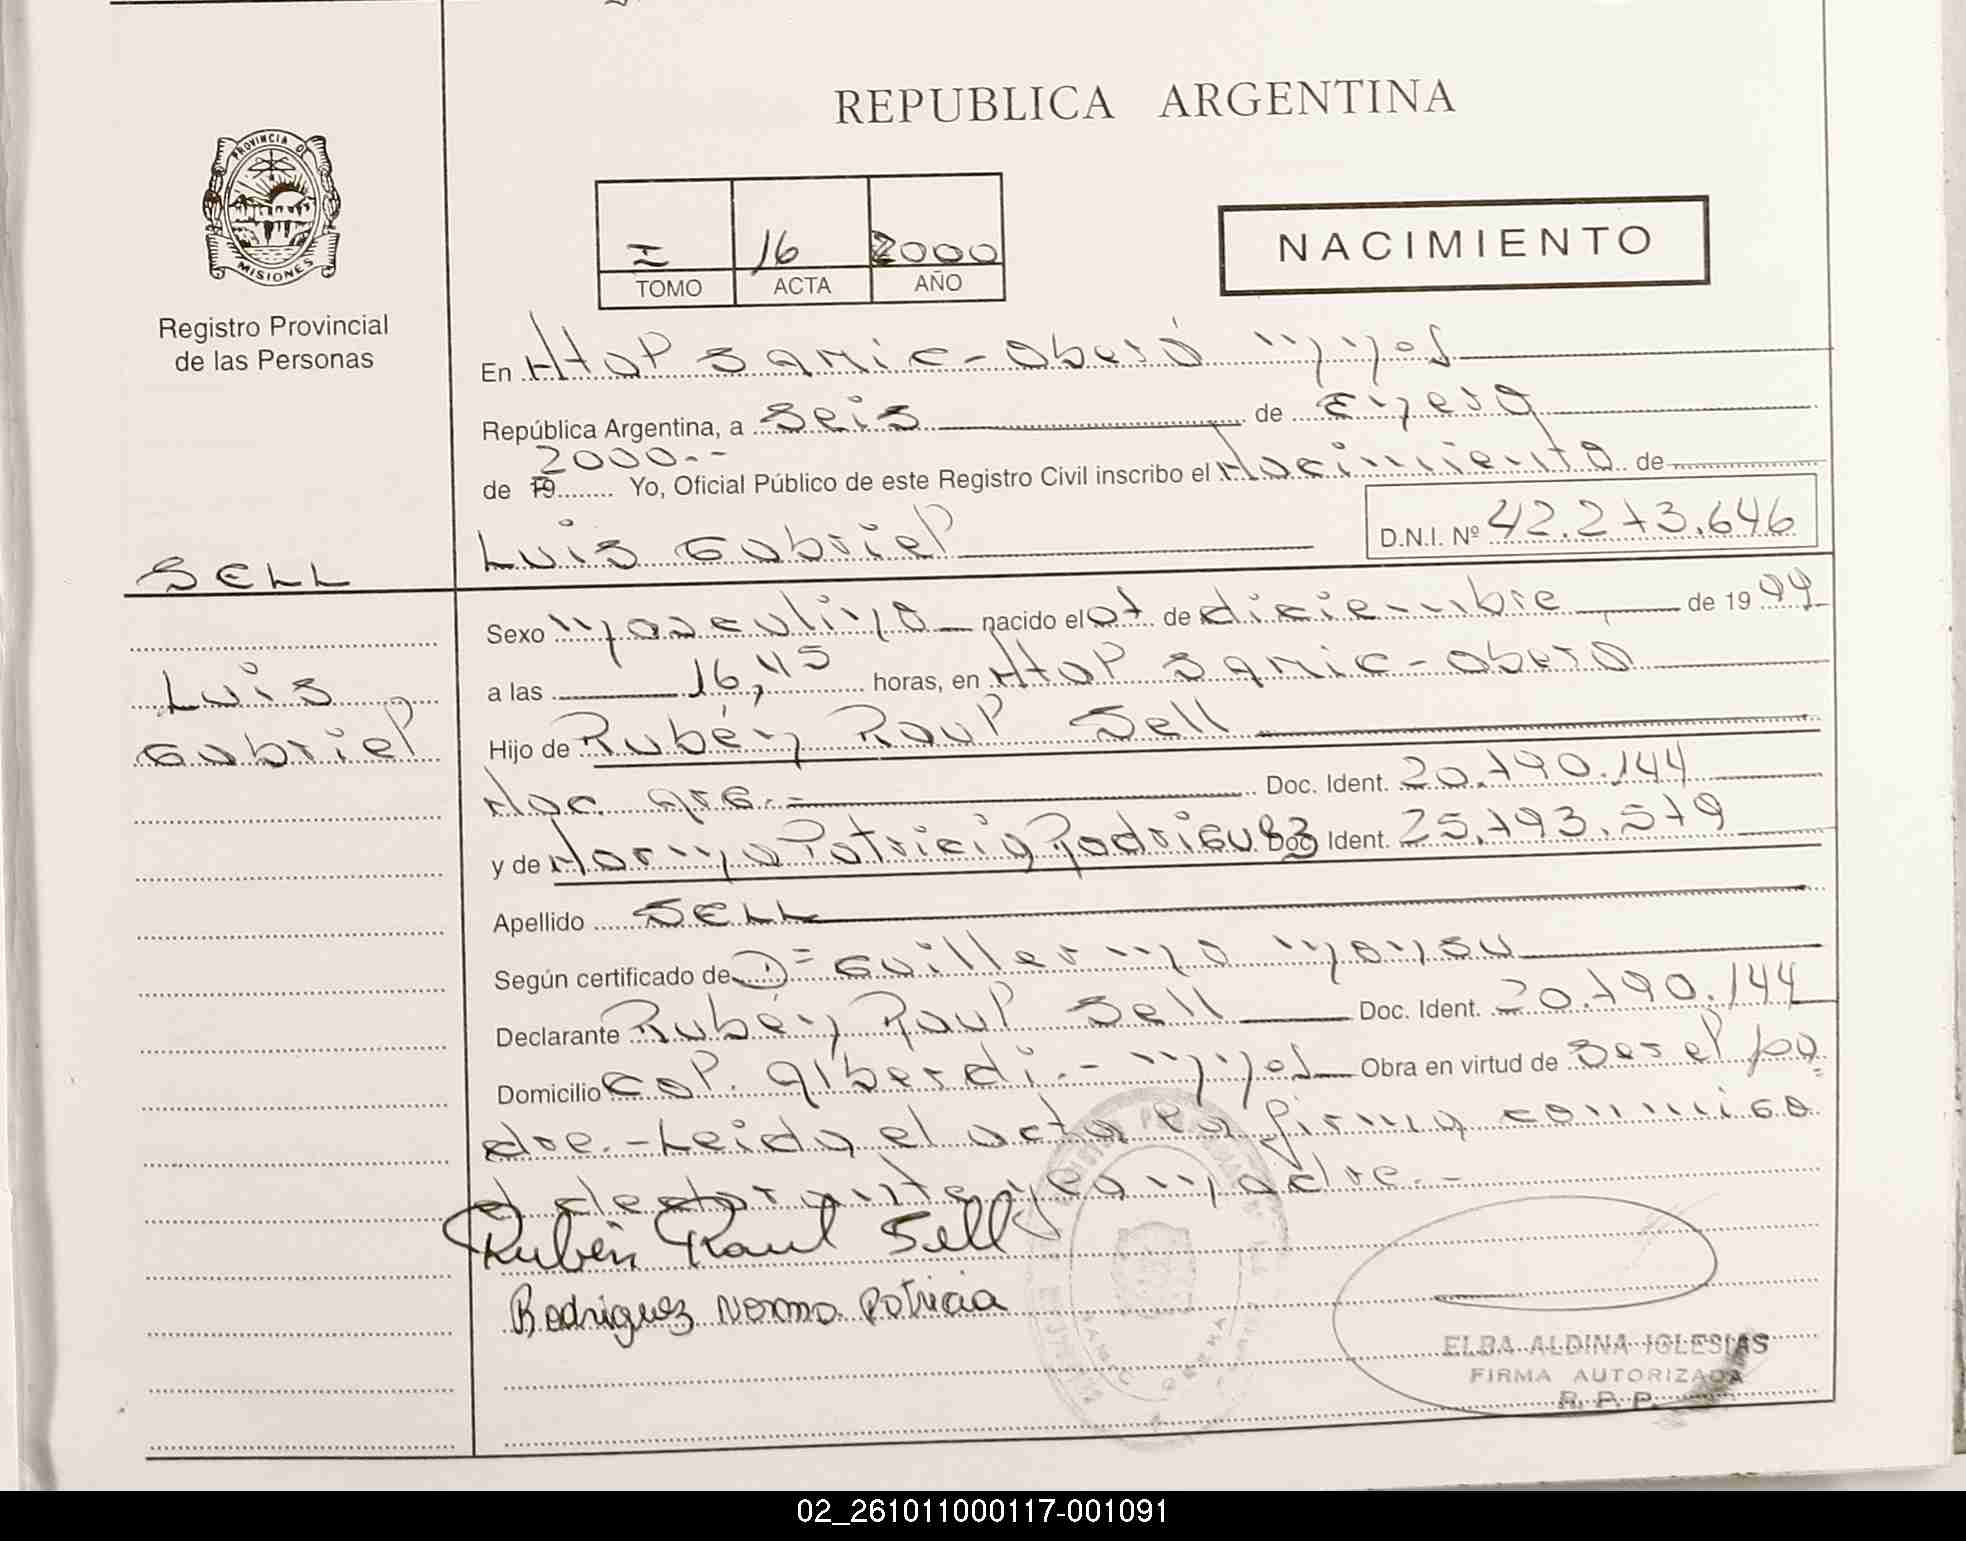 REPUBLICA ARGENTINA
PROVINCIA D
MISIONES
Registro Provincial
de las Personas
I 16 2000
TOMO ACTA AÑO
NACIMIENTO
En Htal Samic - Oberá Mnes
República Argentina, a seis de Enero
2000.-
de 19 Yo, Oficial Público de este Registro Civil inscribo el Nacimiento de
Luis Gabriel D.N.I. Nº 42.273.646
SELL
Luis
Gabriel
Sexo masculino nacido el 07 de diciembre de 1999
a las 16,45 horas, en Htal Samic - Oberá
Hijo de Rubén Raul Sell
Nac. arg.- Doc. Ident. 20.790.144
y de Norma Patricia Rodriguez Doc. Ident. 25.793.579
Apellido SELL
Según certificado de Guillermo
Declarante Rubén Raul Sell Doc. Ident. 20.790.144
Domicilio Col. Alberdi.- Mnes Obra en virtud de ser el pa
dre.- Leida el acta la firma conmigo
el declarante y la madre.-
Ruben Raul Sell
Rodriguez Norma Patricia
ELBA ALDINA IGLESIAS
FIRMA AUTORIZADA
R. P. P.
02_261011000117-001091